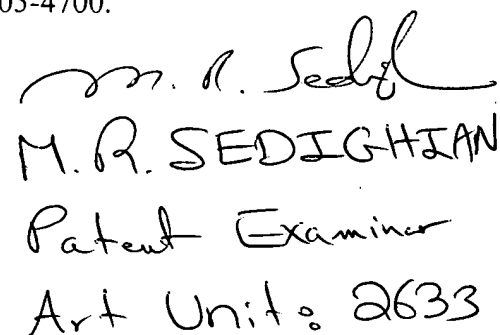 05-4700.
M. R. Sedigh
M.R. SEDIGHIAN
Patent Examiner
Art Unit: 2633